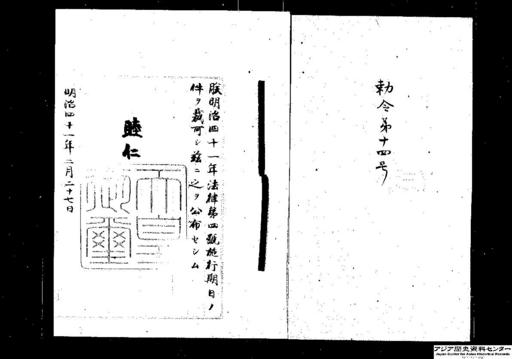 勅令第十四号
朕明治四十一年法律第四號施行期日ノ
件ヲ裁可シ茲ニ之ヲ公布セシム
睦仁
天皇御璽
明治四十一年二月二十七日
アジア歴史資料センター
Japan Center for Asian Historical Records